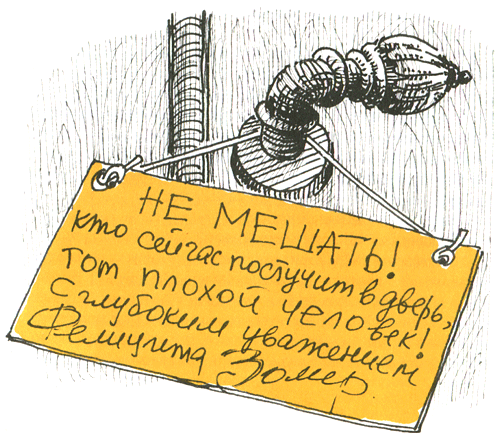 НЕ МЕШАТЬ!
кто сейчас постучит в дверь,
тот плохой человек!
с глубоким уважением
Фелицита Зомер.